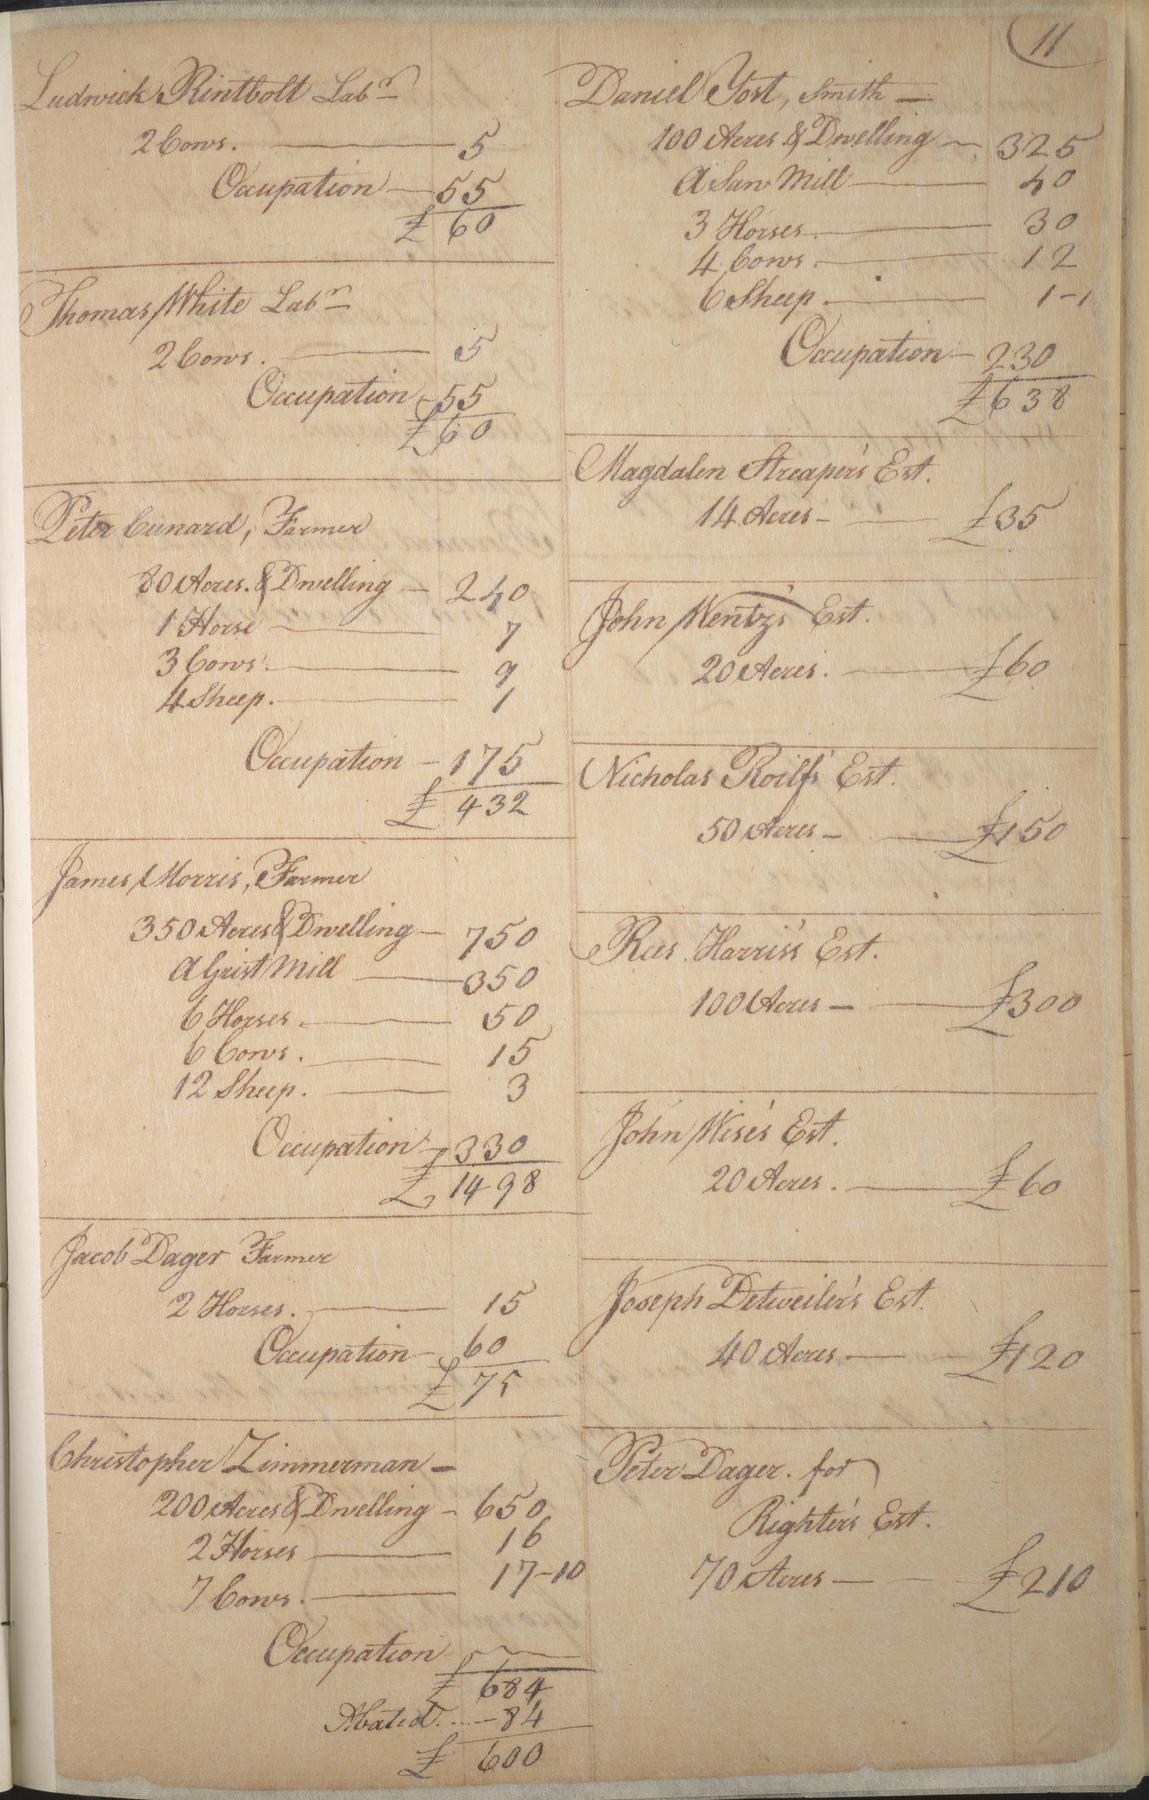 11
Ludwick Rintbolt Labr
2 Cows. — 5
Occupation — 55
£ 60
Thomas White Labr
2 Cows. — 5
Occupation — 55
£ 60
Peter Cunard, Farmer
80 Acres. & Dwelling — 240
1 Horse — 7
3 Cows — 9
4 Sheep. — 1
Occupation — 175
£ 432
James Morris, Farmer
350 Acres & Dwelling — 750
A Grist Mill — 350
6 Horses. — 50
6 Cows. — 15
12 Sheep. — 3
Occupation — 330
£ 1498
Jacob Dager Farmer
2 Horses. — 15
Occupation — 60
£ 75
Christopher Zimmerman —
200 Acres & Dwelling — 650
2 Horses — 16
7 Cows. — 17-10
Occupation
£ 684
Abated .... — 84
£ 600
Daniel Yost, Smith —
100 Acres & Dwelling — 325
A Saw Mill — 40
3 Horses. — 30
4 Cows. — 12
6 Sheep. — 1-1
Occupation — 230
£ 638
Magdalen Streaper's Est.
14 Acres — £35
John Wentz's Est.
20 Acres. — £60
Nicholas Est.
50 Acres — £150
Rees Harris's Est.
100 Acres — £300
John Wise's Est.
20 Acres. — £60
Joseph Detweiler's Est.
40 Acres — £120
Peter Dager. for
Righter's Est.
70 Acres — £210